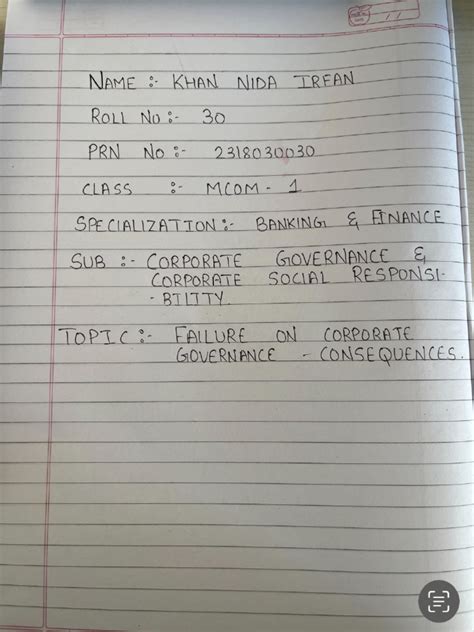 NAME :- KHAN NIDA IRFAN
ROLL NO :- 30
PRN NO :- 2318030030
CLASS :- MCOM - 1
SPECIALIZATION :- BANKING & FINANCE
SUB :- CORPORATE GOVERNANCE &
CORPORATE SOCIAL RESPONSI-
-BILITY.
TOPIC :- FAILURE ON CORPORATE
GOVERNANCE - CONSEQUENCES.